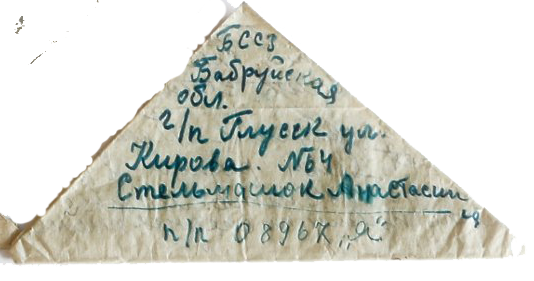 БССЗ
Бабруйская
обл.
г/п Глусск ул.
Кирова. №64
Стельмашок Анастасии
п/п 08967 „Я"